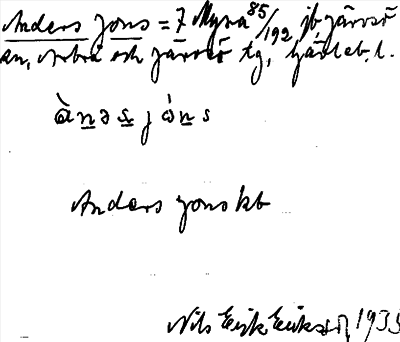 Anders Jons = 7 Myra 85/192 jb, Järvsö
sn, Arbrå och Järvsö tg, Gävleb. l.
ànəs jòns
Anders Jons kb
Nils Erik Eriksson 1935